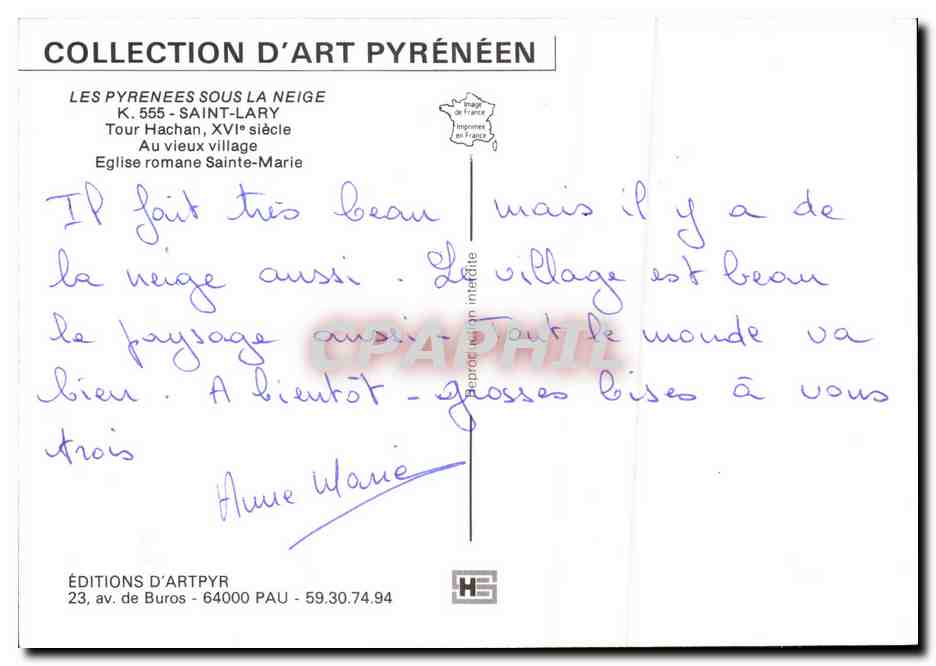 COLLECTION D'ART PYRÉNÉEN
LES PYRENEES SOUS LA NEIGE
K. 555 - SAINT-LARY
Tour Hachan, XVIe siècle
Au vieux village
Eglise romane Sainte-Marie
Image
de France
Imprimée
en France
Il fait très beau mais il y a de
la neige aussi. Le village est beau
le paysage aussi - Tout le monde va
bien. A bientôt - grosses bises à vous
trois
Anne Marie
Reproduction interdite
CPAPHIL
ÉDITIONS D'ARTPYR
23, av. de Buros - 64000 PAU - 59.30.74.94
HS